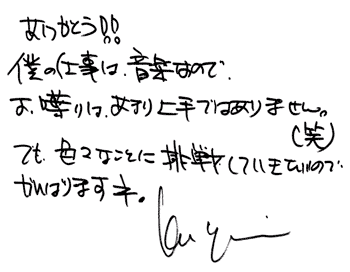 ありがとう!!
僕の仕事は、音楽なので、
お喋りは、あまり上手ではありません。
(笑)
でも、色々なことに挑戦していきたいので
がんばりますネ。